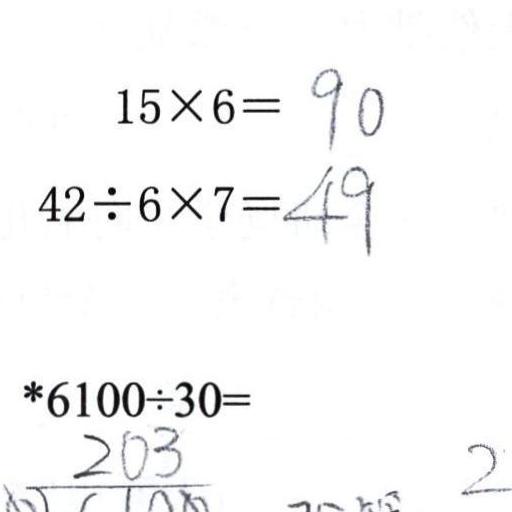 15×6= 90
42÷6×7=49
*6100÷30=
203
2